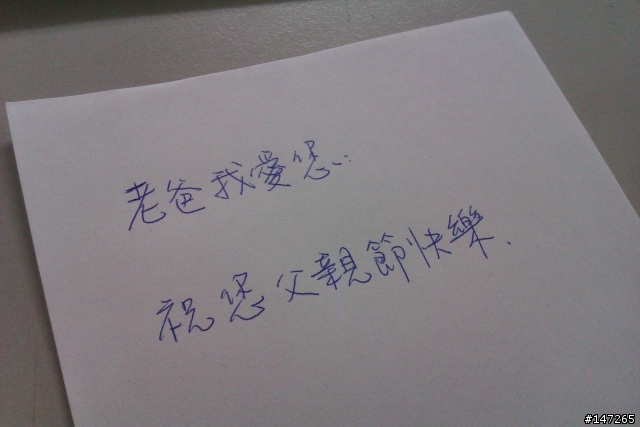 老爸我愛您...
祝您父親節快樂.
#147265